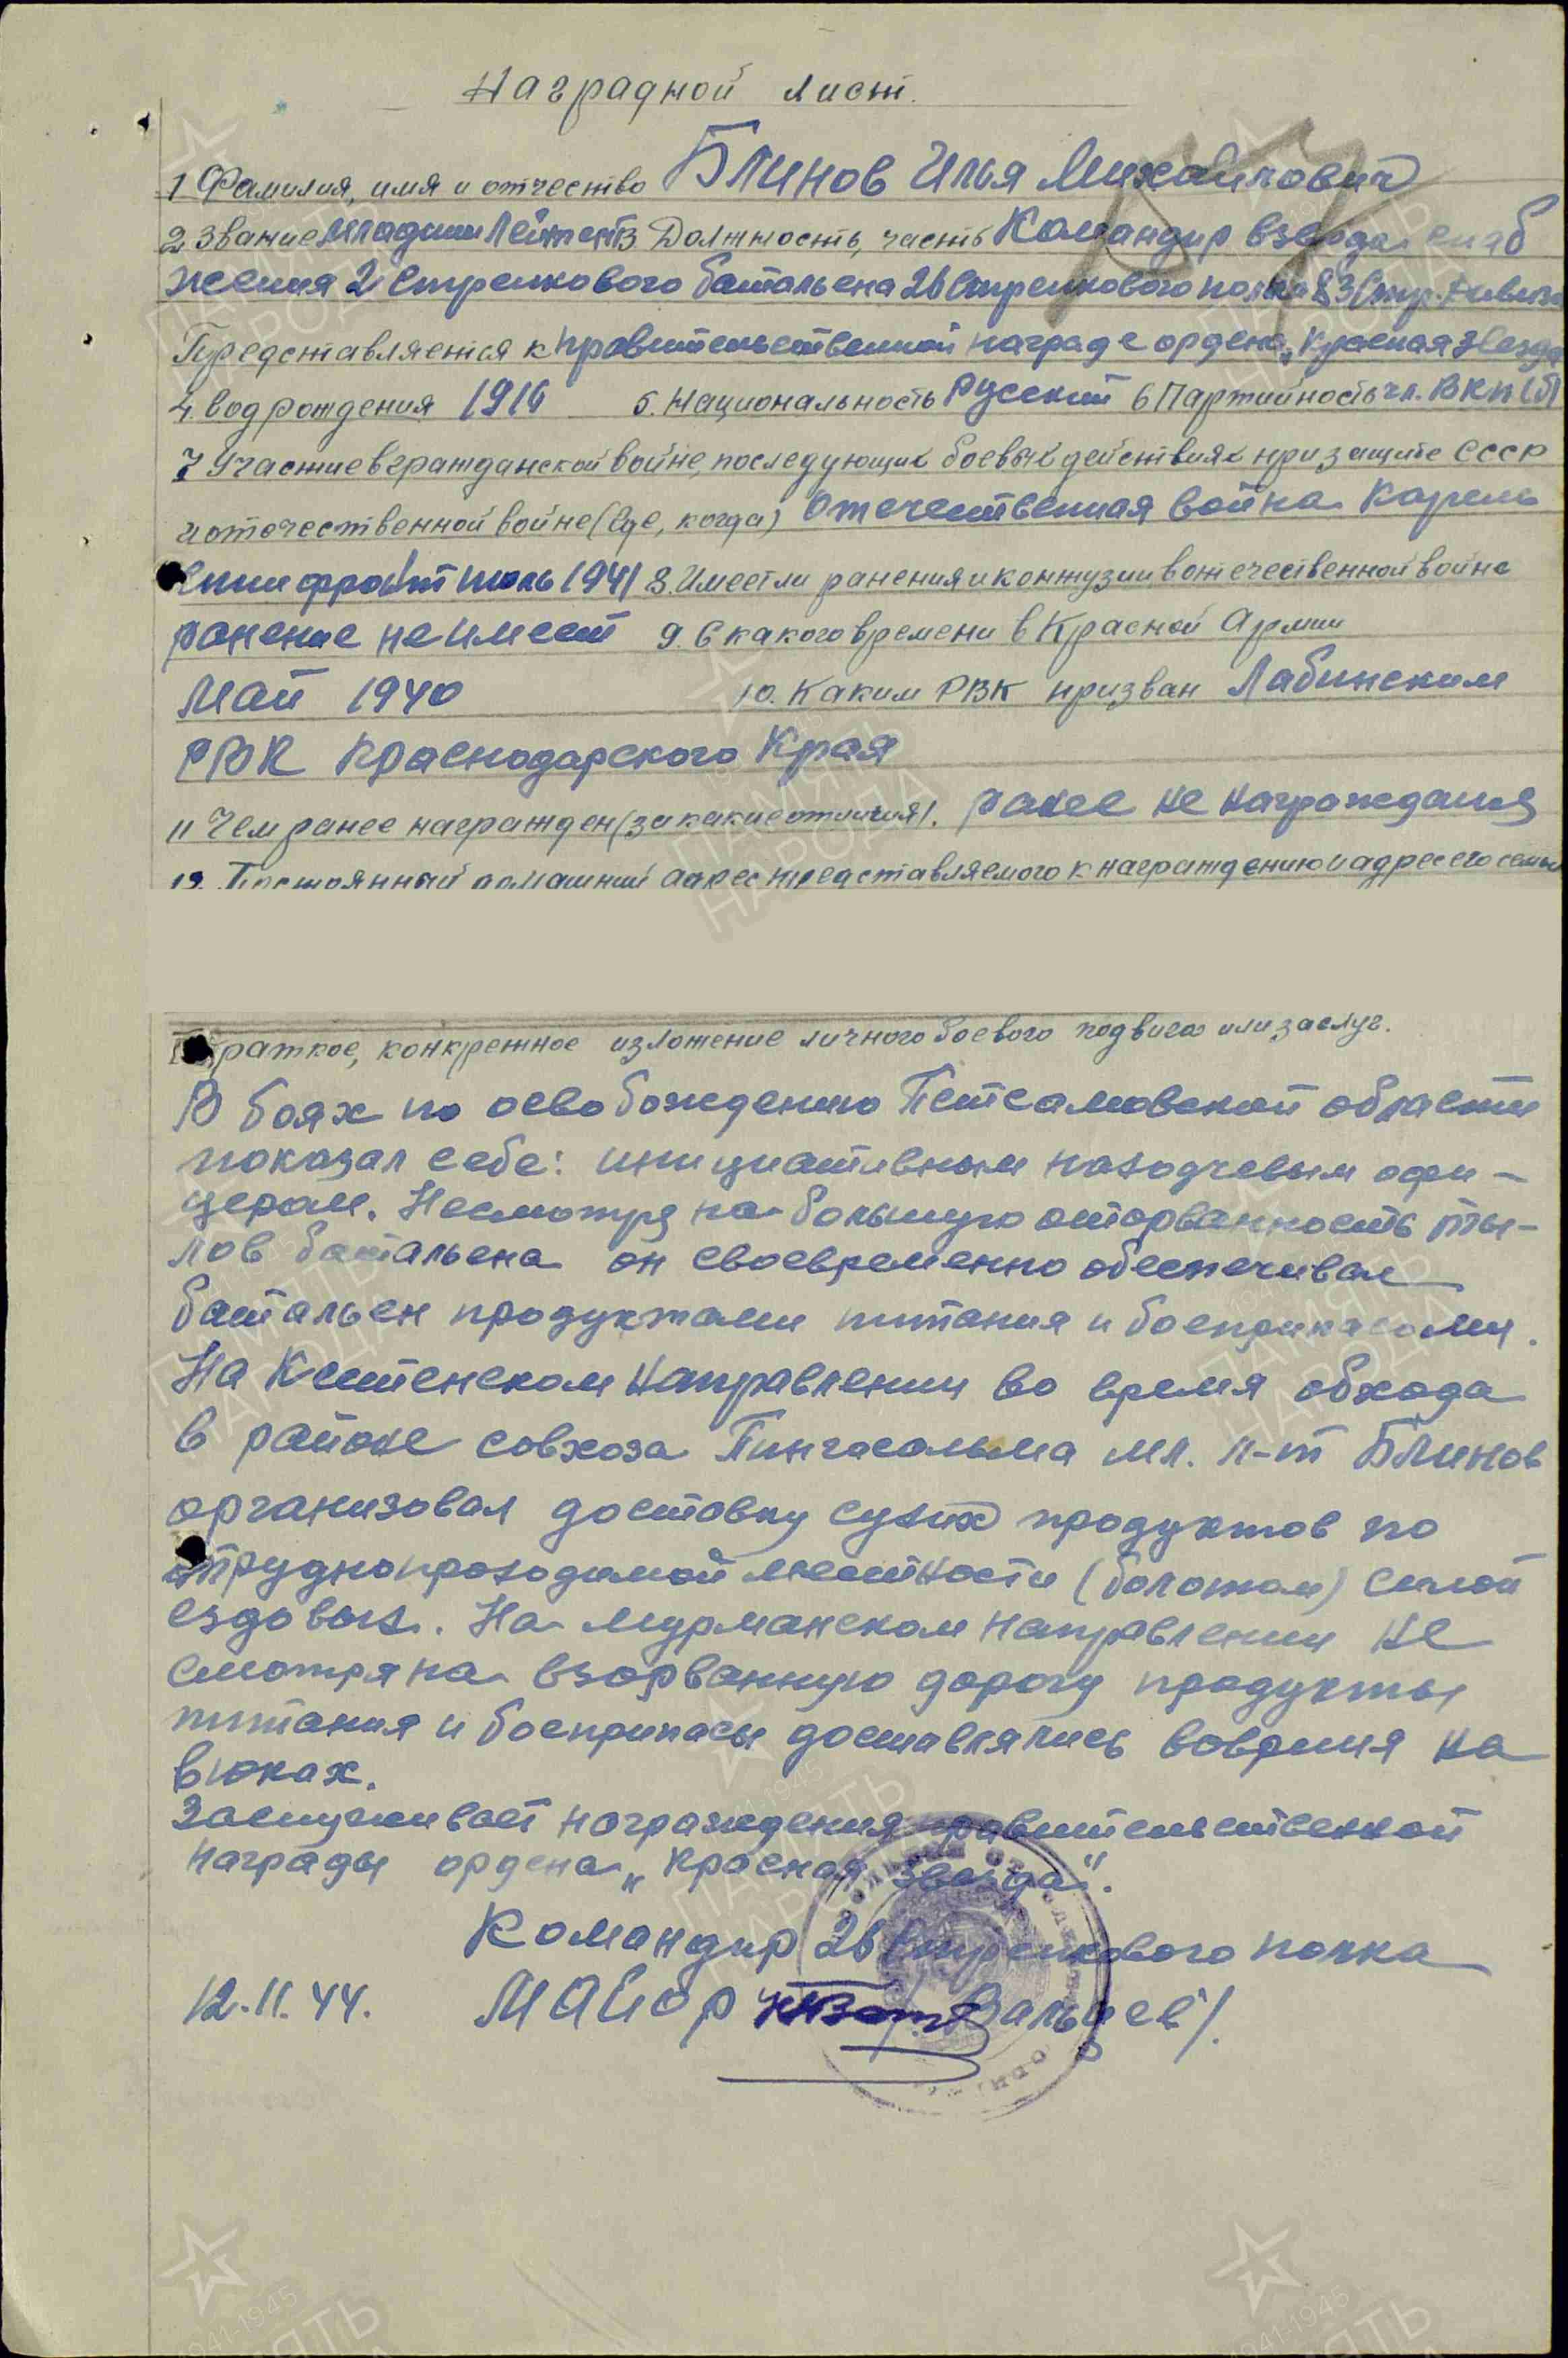 Наградной лист.
1 Фамилия, имя и отчество Блинов Илья Михайлович
2 Звание младший Лейтент 3 Должность, часть Командир взвода снаб
жения 2 стрелкового батальена 26 Стрелкового полка 83 Стр. дивизи
Представляется к правительственной награде ордена „Красная Звезда
4. Год рождения 1916 5. Национальность Русский 6 Партийность чл. ВКП(б)
7 Участие в гражданской войне, последующих боевых действиях при защите СССР
и отечественной войне (где, когда) Отечественная война Карель
фронт июль 1941 8. Имеет ли ранения и контузии в отечественной войне
ранение не имеет 9. С какого времени в Красной Армии
Май 1940 10. Каким РВК призван Лабинским
РВК Краснодарского Края
11 Чем ранее награжден (за какие отличия). ранее не награждался
12. Постоянный домашний адрес представляемого к награждению и адрес его семьи
Краткое, конкретное изложение личного боевого подвига или заслуг.
В боях по освобождению Петсамовской области
показал себе: инициативным находчевым офи-
цером. Несмотря на большую оторванность ты-
лов батальена он своевременно обеспечивал
батальен продуктами питания и боеприпасами.
На Кестенском направлении во время обхода
в районе совхоза Пингасальма мл. л-т Блинов
организовал доставку сухих продуктов по
труднопроходимой местности (болотам) силой
ездовых. На мурманском направлении не
смотря на взорванную дорогу продукты
питания и боеприпасы доставлялись вовремя на
вьюках.
Заслуживает награждения правительственной
награды ордена „Красная Звезда".
Командир 26 Стрелкового полка
12.11.44. Майор